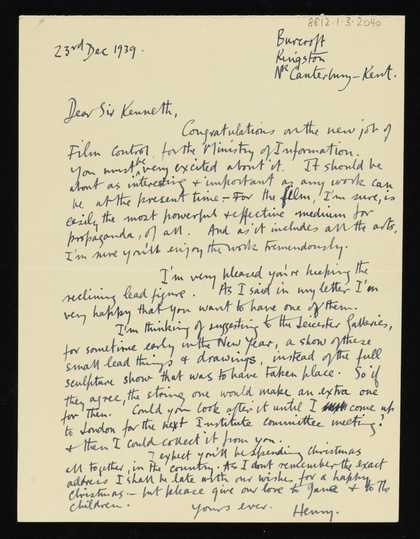 8812.1.3.2040
23rd Dec 1939.
Burcroft
Kingston
Nr Canterbury - Kent.
Dear Sir Kenneth,
Congratulations on the new job of
Film control, for the Ministry of Information.
You must be very excited about it. It should be
about as interesting & important as any work can
be at the present time - For the film, I'm sure, is
easily the most powerful & effective medium for
propaganda, of all. And as it includes all the arts,
I'm sure you'll enjoy the work tremendously.
I'm very pleased you're keeping the
reclining lead figure. As I said in my letter I'm
very happy that you want to have one of them.
I'm thinking of suggesting to the Leicester Galleries,
for sometime early in the New Year, a show of these
small lead things & drawings, instead of the full
sculpture show that was to have taken place. So if
they agree, the string one would make an extra one
for them. Could you look after it until I come up
to London for the next Institute committee meeting?
& then I could collect it from you.
I expect you'll be spending Christmas
all together, in the country. As I don't remember the exact
address I shall be late with our wishes for a happy
Christmas - but please give our love to Jane & to the
children.
Yours ever.
Henry.